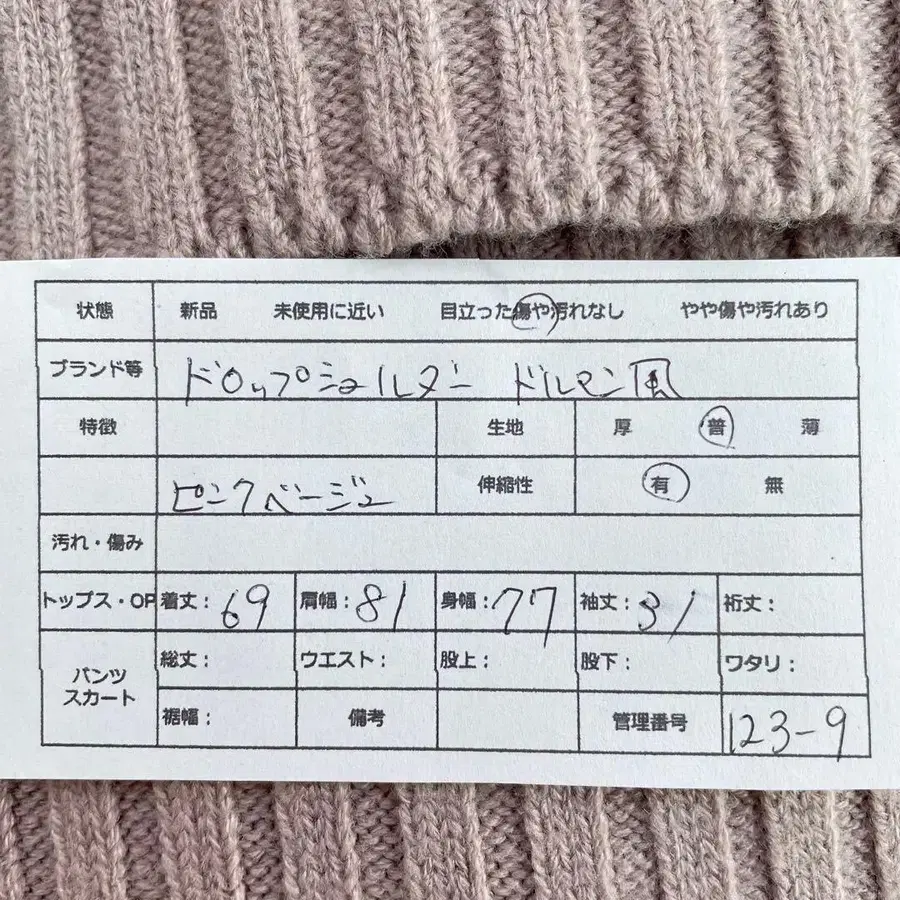 状態 新品 未使用に近い 目立った傷や汚れなし やや傷や汚れあり
ブランド等 ドロップショルダー ドルマン風
特徴 生地 厚 普 薄
ピンクベージュ 伸縮性 有 無
汚れ・傷み
トップス・OP 着丈：69 肩幅：81 身幅：77 袖丈：31 裄丈：
パンツ スカート 総丈： ウエスト： 股上： 股下： ワタリ：
裾幅： 備考 管理番号 123-9